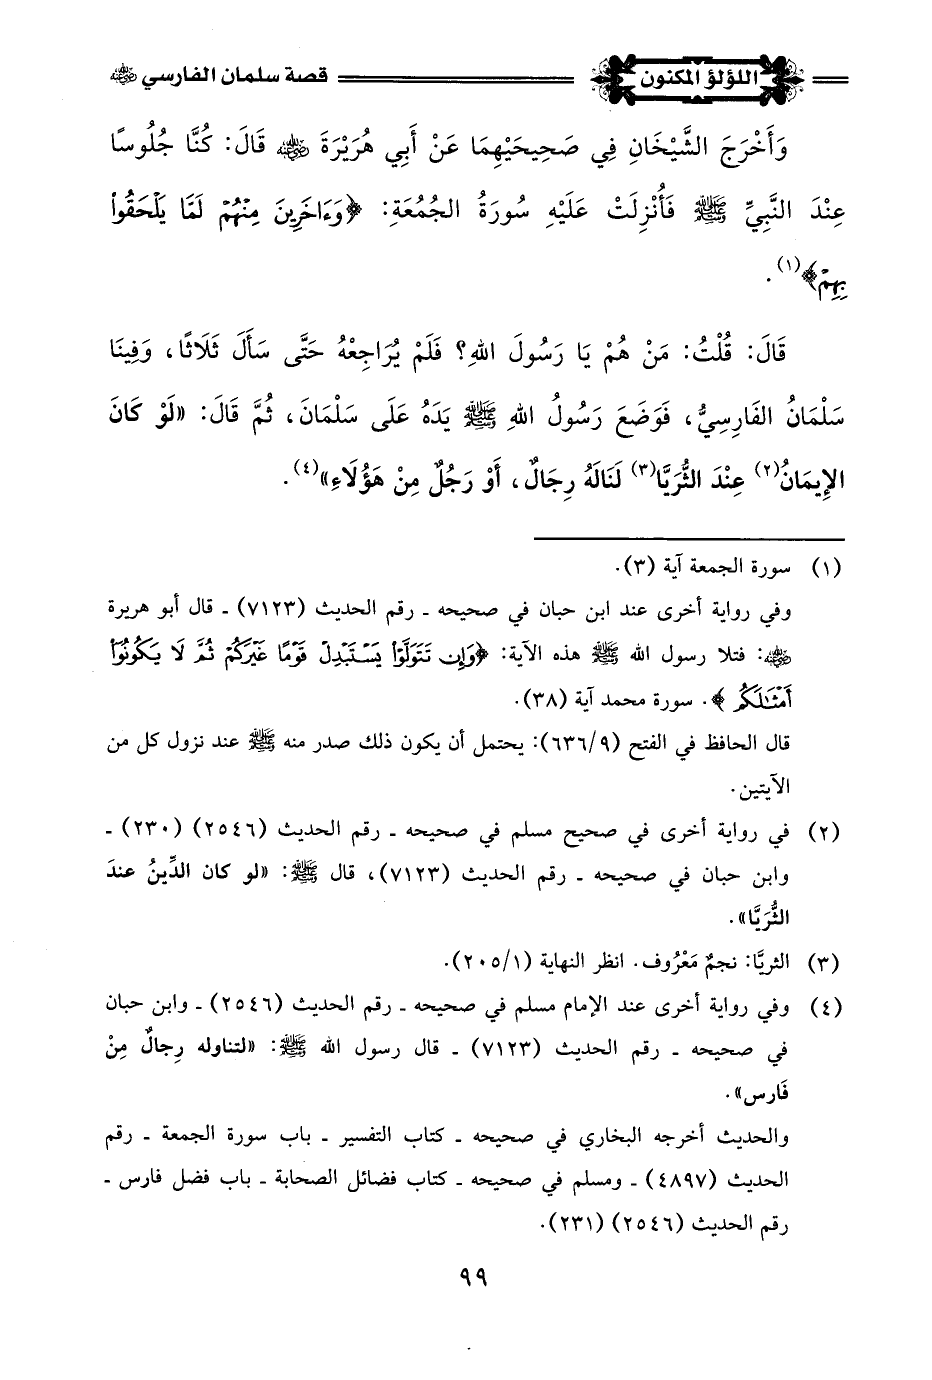 اللؤلؤ المكنون
قصة سلمان الفارسي ﵁
وَأَخْرَجَ الشَّيْخَانِ فِي صَحِيحَيْهِمَا عَنْ أَبِي هُرَيْرَةَ ﵁ قَالَ: كُنَّا جُلُوسًا
عِنْدَ النَّبِيِّ ﷺ فَأُنْزِلَتْ عَلَيْهِ سُورَةُ الجُمُعَةِ: ﴿وَءَاخَرِينَ مِنْهُمْ لَمَّا يَلْحَقُواْ
بِهِمْ﴾(١).
قَالَ: قُلْتُ: مَنْ هُمْ يَا رَسُولَ اللهِ؟ فَلَمْ يُرَاجِعْهُ حَتَّى سَأَلَ ثَلَاثًا، وَفِينَا
سَلْمَانُ الفَارِسِيُّ، فَوَضَعَ رَسُولُ اللهِ ﷺ يَدَهُ عَلَى سَلْمَانَ، ثُمَّ قَالَ: «لَوْ كَانَ
الإِيمَانُ(٢) عِنْدَ الثُّرَيَّا(٣) لَنَالَهُ رِجَالٌ، أَوْ رَجُلٌ مِنْ هَؤُلَاءِ»(٤).
(١) سورة الجمعة آية (٣).
وفي رواية أخرى عند ابن حبان في صحيحه ـ رقم الحديث (٧١٢٣) ـ قال أبو هريرة
﵁: فتلا رسول الله ﷺ هذه الآية: ﴿وَإِن تَتَوَلَّوْاْ يَسْتَبْدِلْ قَوْمًا غَيْرَكُمْ ثُمَّ لَا يَكُونُوٓاْ
أَمْثَٰلَكُم﴾. سورة محمد آية (٣٨).
قال الحافظ في الفتح (٦٣٦/٩): يحتمل أن يكون ذلك صدر منه ﷺ عند نزول كل من
الآيتين.
(٢) في رواية أخرى في صحيح مسلم في صحيحه ـ رقم الحديث (٢٥٤٦) (٢٣٠) ـ
وابن حبان في صحيحه ـ رقم الحديث (٧١٢٣)، قال ﷺ: «لو كان الدِّينُ عندَ
الثُّرَيَّا».
(٣) الثريَّا: نجمٌ مَعْرُوف. انظر النهاية (٢٠٥/١).
(٤) وفي رواية أخرى عند الإمام مسلم في صحيحه ـ رقم الحديث (٢٥٤٦) ـ وابن حبان
في صحيحه ـ رقم الحديث (٧١٢٣) ـ قال رسول الله ﷺ: «لتناوله رِجالٌ مِنْ
فَارس».
والحديث أخرجه البخاري في صحيحه ـ كتاب التفسير ـ باب سورة الجمعة ـ رقم
الحديث (٤٨٩٧) ـ ومسلم في صحيحه ـ كتاب فضائل الصحابة ـ باب فضل فارس ـ
رقم الحديث (٢٥٤٦) (٢٣١).
٩٩